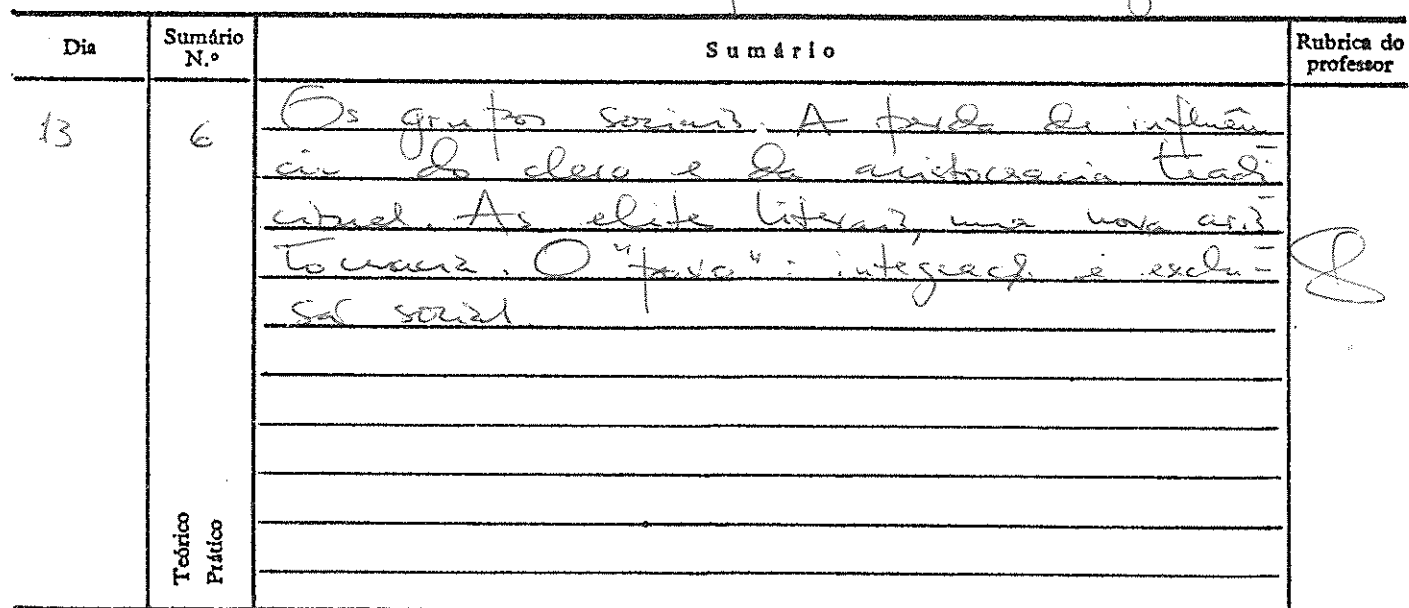 Dia Sumário N.º Sumário Rubrica do professor
13 6 Os grupos sociais. A perda de influên-
cia do clero e da aristocracia tradi-
cional. As elite literais, uma nova aris-
tocracia. O "povo": integração e exclu-
são social
Teórico
Prático